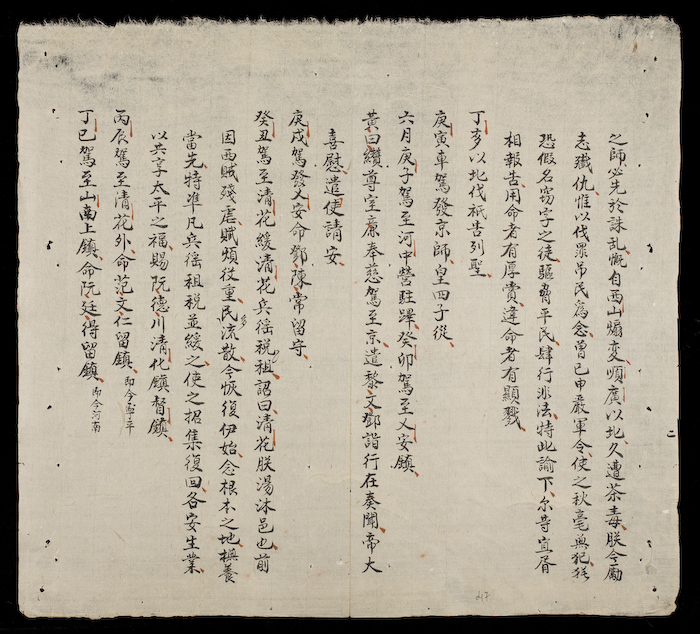 之師必先於誅乱慨自西山煽変順廣以北久遭荼毒朕今勵
志殲仇惟以伐罪吊民為念曾已申嚴軍令使之秋毫無犯猶
恐假名窃字之徒驅脅平民肆行非法特此諭下尔等宜胥
相報告用命者有厚賞違命者有顯戮
丁亥以北伐祇告列聖
庚寅車駕發京師皇四子從
六月庚子駕至河中營駐蹕癸卯駕至乂安鎮
黄曰纘尊室康奉慈駕至京遣黎文鄧詣行在奏聞帝大
喜慰遣使請安
庚戌駕發乂安命鄧陳常留守
癸丑駕至清花緩清花兵徭税租詔曰清花朕湯沐邑也前
因西賊殘虐賦煩役重民多流散今恢復伊始念根本之地撫養
當先特準凡兵徭租税並緩之使之招集復回各安生業
以共享太平之福賜阮德川清化鎮督鎮
丙辰駕至清花外命范文仁留鎮即今寧平
丁巳駕至山南上鎮命阮廷得留鎮即今河南
二